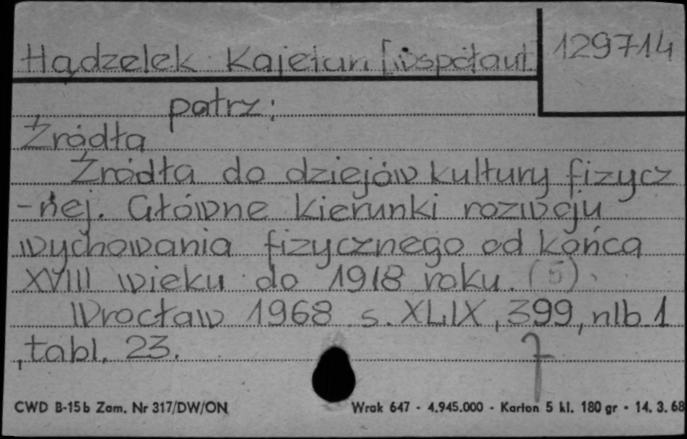 Hądzelek Kajetan [współaut. 129714
patrz:
Źródła
Źródła do dziejów kultury fizycz
-nej. Główne kierunki rozwoju
wychowania fizycznego od końca
XVIII wieku do 1918 roku. (5).
Wrocław 1968 s. XLIX, 399, nlb. 1
, tabl. 23. 7
CWD B-15b Zam. Nr 317/DW/ON Wrak 647 - 4.945.000 - Karton 5 kl. 180 gr - 14. 3. 68